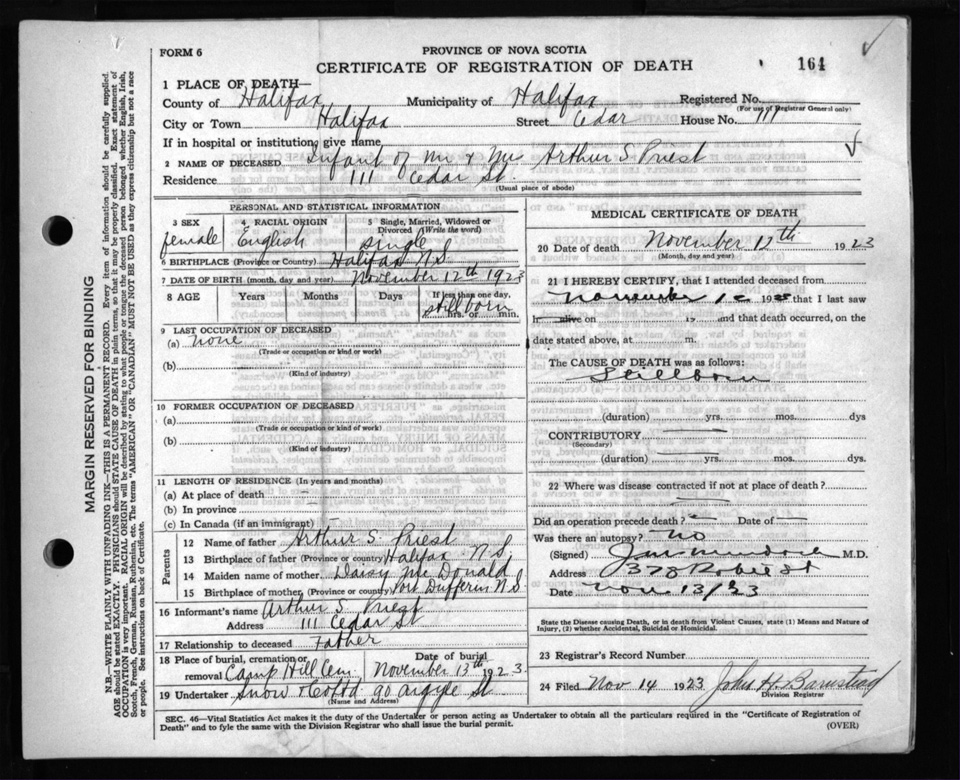 FORM 6
PROVINCE OF NOVA SCOTIA
CERTIFICATE OF REGISTRATION OF DEATH
164
1 PLACE OF DEATH—
County of Halifax Municipality of Halifax Registered No.
(For use of Registrar General only)
City or Town Halifax Street Cedar House No. 111
If in hospital or institution, give name
2 NAME OF DECEASED Infant of Mr & Mrs Arthur S. Priest
Residence 111 Cedar St.
(Usual place of abode)
PERSONAL AND STATISTICAL INFORMATION
3 SEX 4 RACIAL ORIGIN 5 Single, Married, Widowed or Divorced (Write the word)
female English single
6 BIRTHPLACE (Province or Country) Halifax N.S
7 DATE OF BIRTH (month, day and year) November 12th 1923
8 AGE Years Months Days If less than one day,
stillborn
hrs. or min.
9 LAST OCCUPATION OF DECEASED
(a) none
(Trade or occupation or kind or work)
(b)
(Kind of industry)
10 FORMER OCCUPATION OF DECEASED
(a)
(Trade or occupation or kind of work)
(b)
(Kind of industry)
11 LENGTH OF RESIDENCE (In years and months)
(a) At place of death
(b) In province
(c) In Canada (if an immigrant)
Parents
12 Name of father Arthur S. Priest
13 Birthplace of father (Province or country) Halifax N.S
14 Maiden name of mother Daisy McDonald
15 Birthplace of mother (Province or country) Port Dufferin N.S
16 Informant's name Arthur S. Priest
Address 111 Cedar St
17 Relationship to deceased Father
18 Place of burial, cremation or removal Camp Hill Cem. Date of burial November 13th 1923
19 Undertaker Snow & Co Ltd 90 Argyle St
(Name and Address)
MEDICAL CERTIFICATE OF DEATH
20 Date of death November 12th 1923
(Month, day and year)
21 I HEREBY CERTIFY, that I attended deceased from
November 12 19 that I last saw
h alive on 19 and that death occurred, on the
date stated above, at m.
The CAUSE OF DEATH was as follows:
Stillborn
(duration) yrs. mos. dys
CONTRIBUTORY
(Secondary)
(duration) yrs. mos. dys
22 Where was disease contracted if not at place of death?
Did an operation precede death? Date of
Was there an autopsy? No
(Signed) M.D.
Address 378 Robie St
Date Nov 13/23
State the Disease causing Death, or in death from Violent Causes, state (1) Means and Nature of Injury, (2) whether Accidental, Suicidal or Homicidal.
23 Registrar's Record Number
24 Filed Nov 14 1923 John H. Barnstead
Division Registrar
SEC. 46—Vital Statistics Act makes it the duty of the Undertaker or person acting as Undertaker to obtain all the particulars required in the "Certificate of Registration of
Death" and to fyle the same with the Division Registrar who shall issue the burial permit.
(OVER)
MARGIN RESERVED FOR BINDING
N.B.—WRITE PLAINLY WITH UNFADING INK—THIS IS A PERMANENT RECORD. Every item of information should be carefully supplied.
AGE should be stated EXACTLY. PHYSICIANS should STATE CAUSE OF DEATH in plain terms, so that it may be properly classified. Exact statement of
OCCUPATION is very important. RACIAL ORIGIN will be described by stating to what people or tongue the deceased person belonged whether English, Irish,
Scotch, French, German, Russian, Ruthenian, etc. The terms "AMERICAN" OR "CANADIAN" MUST NOT BE USED as they express citizenship but not a race
or people. See instructions on back of Certificate.